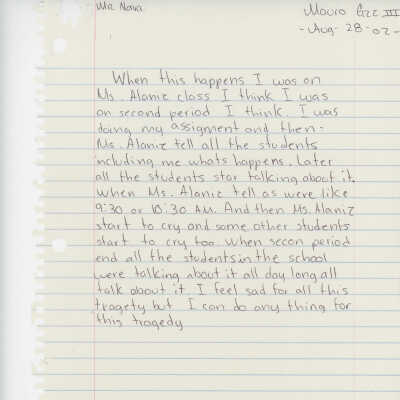 Mr. Nava
Mauro Gzz III
- Aug - 28 - 02 -
When this happens I was on
Ms. Alaniz class I think I was
on second period I think. I was
doing my assigment and then.
Ms. Alaniz tell all the students
including me whats happens. Later
all the students star talking about it.
When Ms. Alaniz tell as were like
9:30 or 10:30 AM. And then Ms. Alaniz
start to cry and some other students
start to cry too. When secon period
end all the students in the school
were talking about it all day long all
talk about it. I feel sad for all this
tragety but I can do any thing for
this tragedy